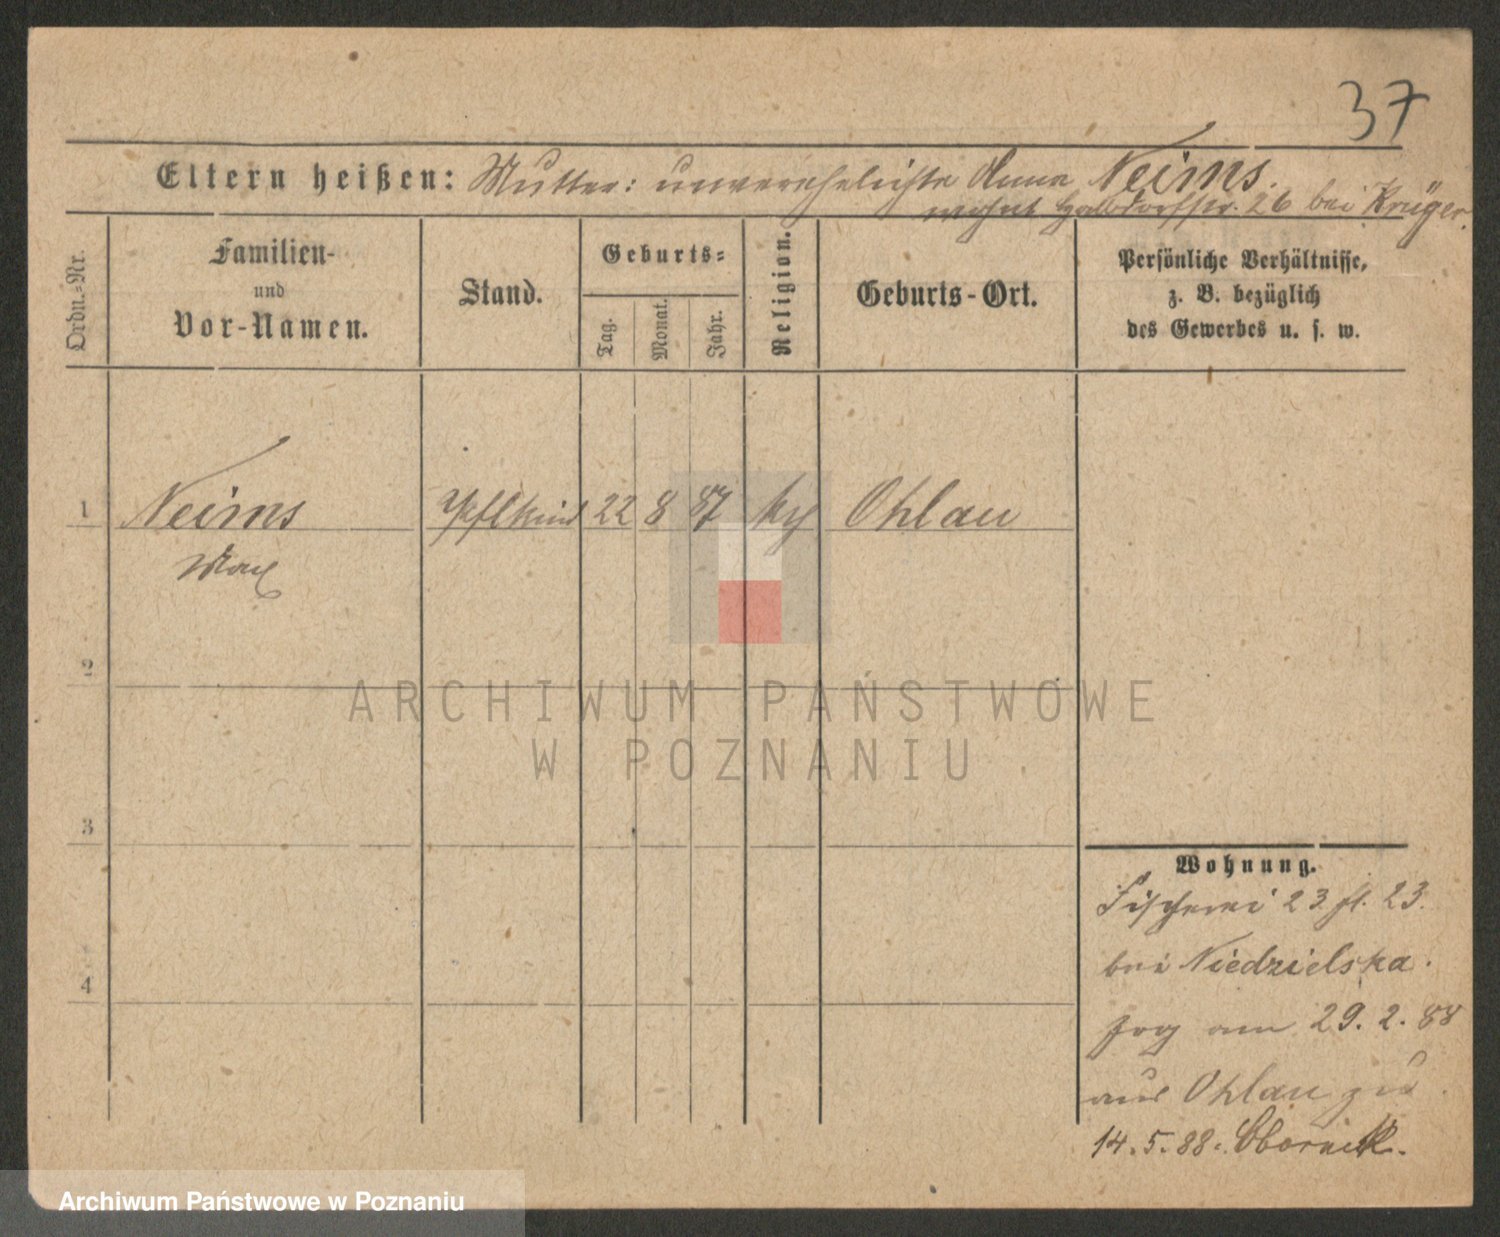 37
Eltern heißen: Mutter: unverehelichte Anna Neims.
wohnt Halbdorfstr. 26 bei Krüger.
Ordn.-Nr.
Familien-
und
Vor-Namen.
Stand.
Geburts-
Tag.
Monat.
Jahr.
Religion.
Geburts-Ort.
Persönliche Verhältnisse,
z. B. bezüglich
des Gewerbes u. s. w.
1 Neims Pflkind 22 8 87 Ohlau
Max
2
3
4
Wohnung.
Fischerei 23 fl. 23.
bei Niedzielska.
zog am 29. 2. 88
aus Ohlau zu.
14. 5. 88. Obornik.
ARCHIWUM PAŃSTWOWE
W POZNANIU
Archiwum Państwowe w Poznaniu